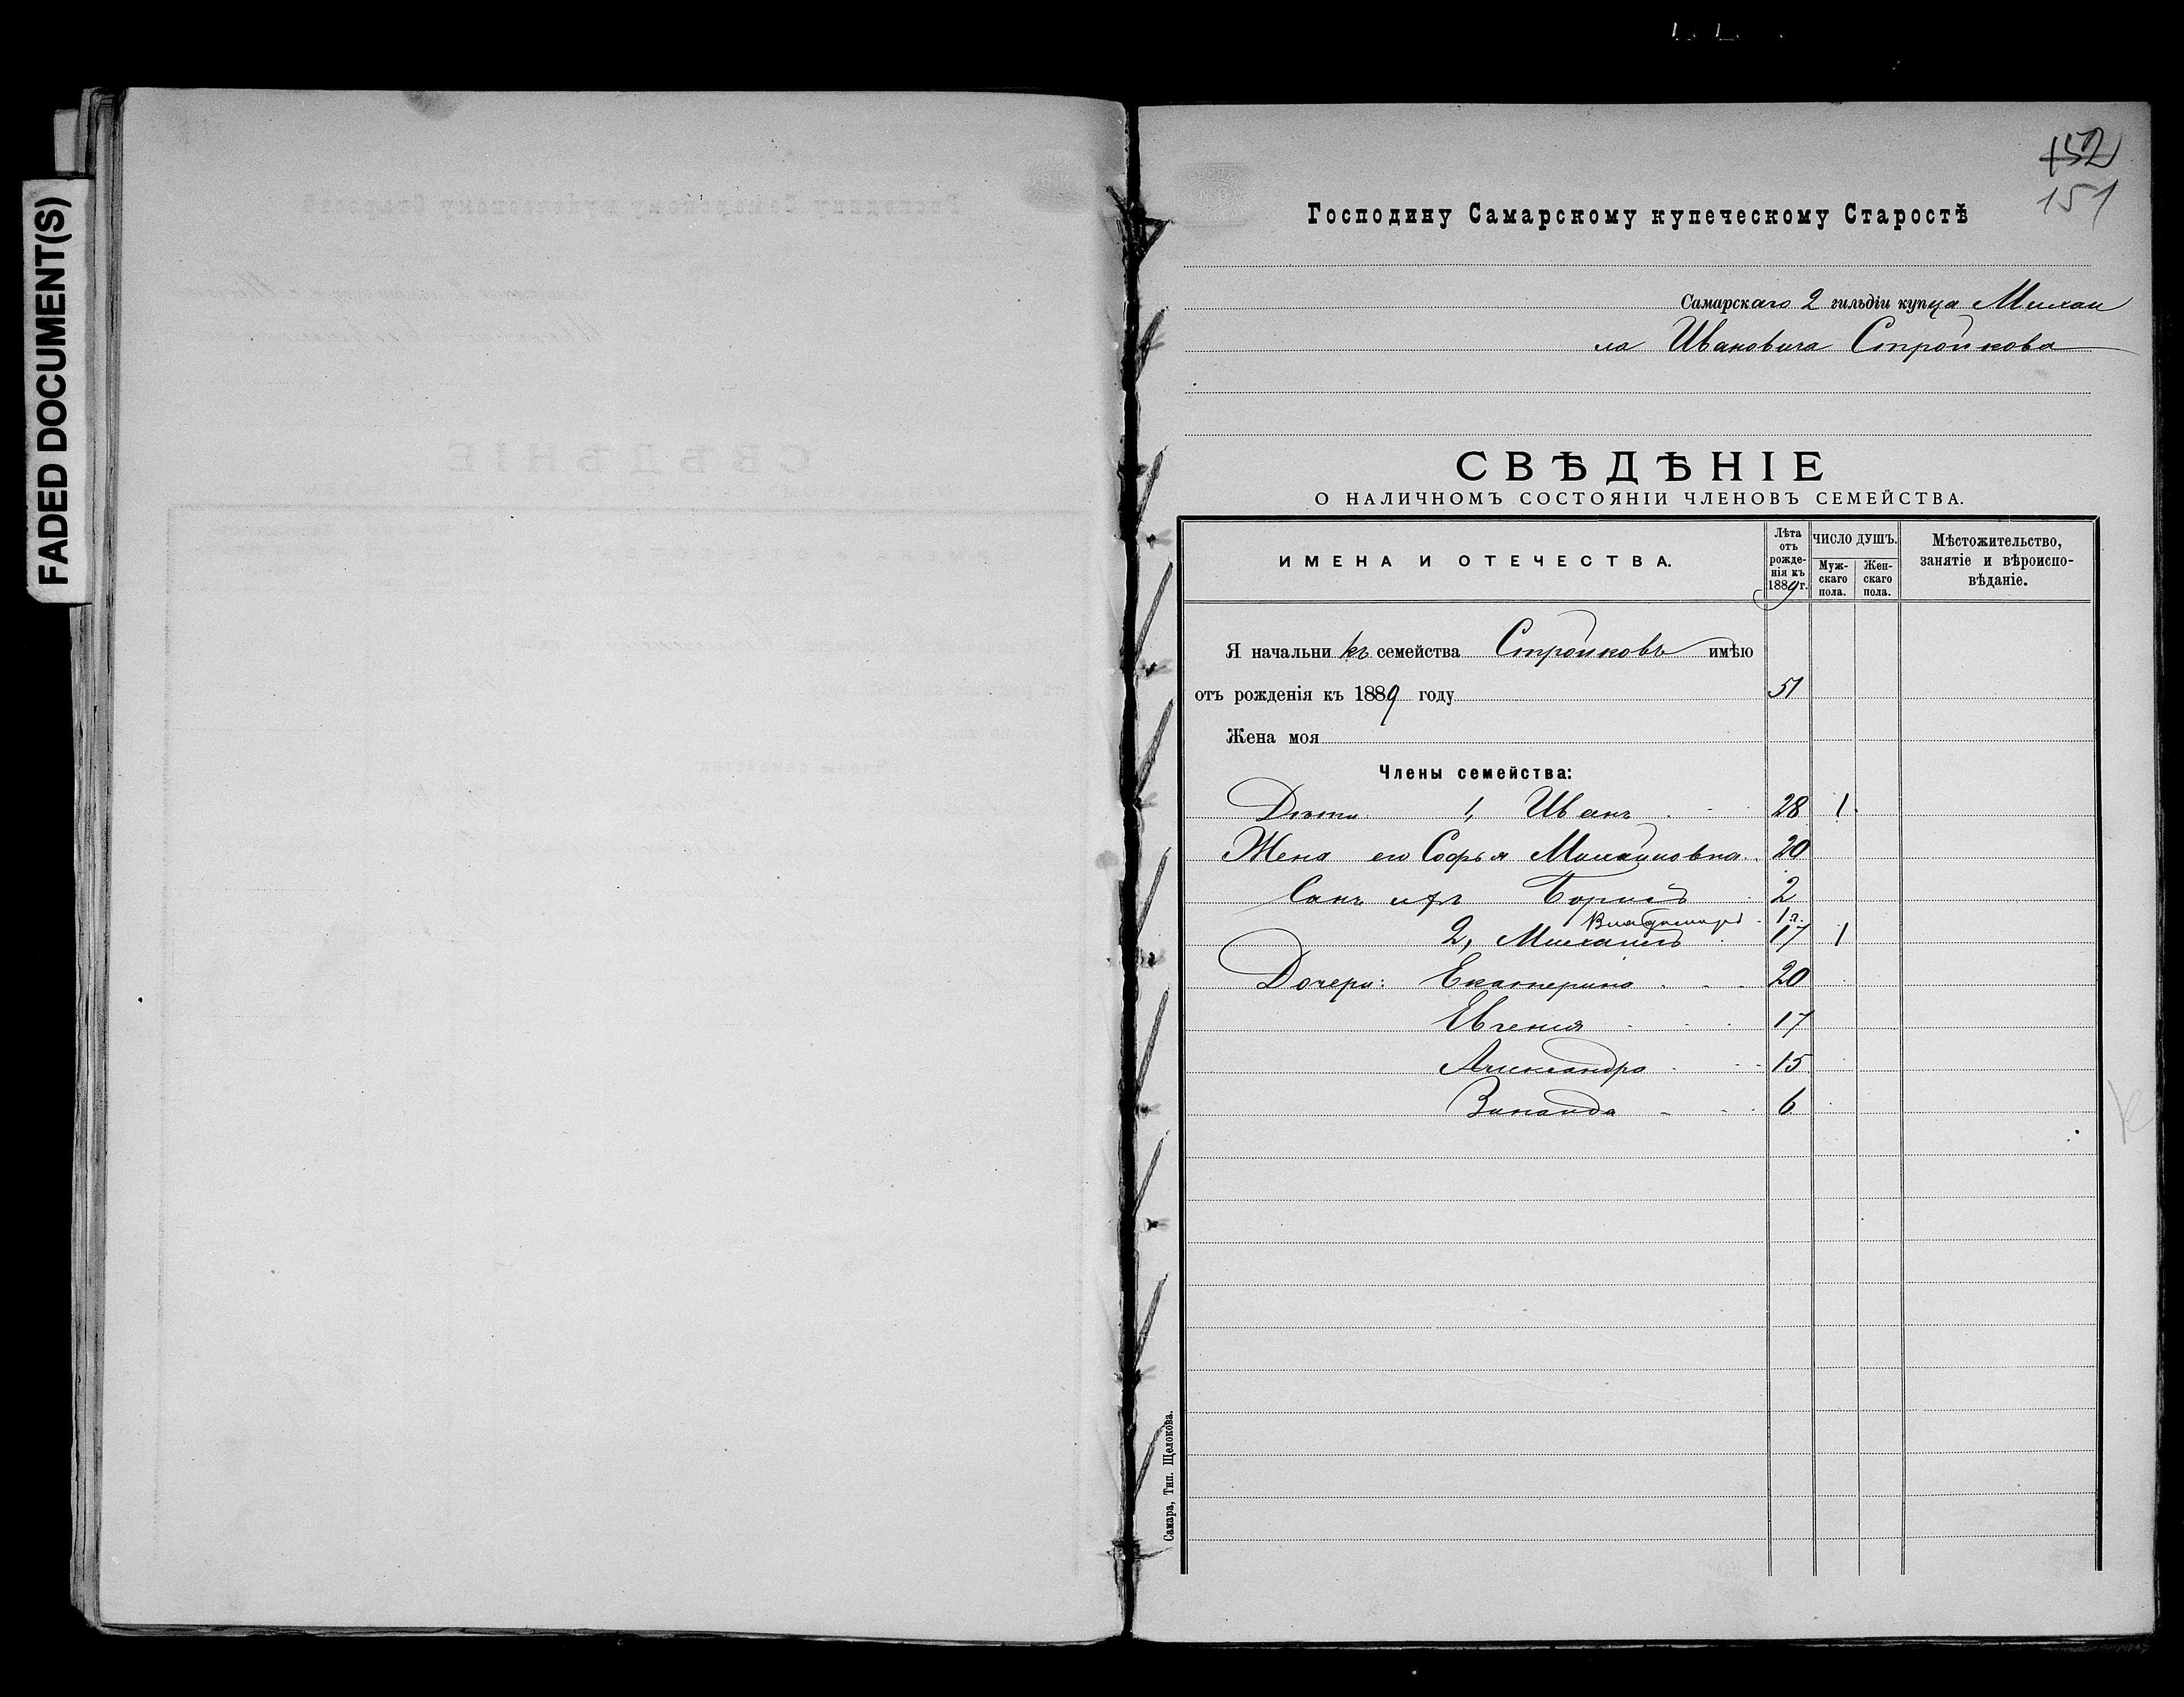 FADED DOCUMENT(S)
152
151
Господину Самарскому купеческому Старостѣ
Самарскаго 2 гильдіи купца Михаи
ла Ивановича Стройкова
СВѢДѢНІЕ
О НАЛИЧНОМЪ СОСТОЯНІИ ЧЛЕНОВЪ СЕМЕЙСТВА.
ИМЕНА И ОТЕЧЕСТВА.
Лѣта отъ рожде- нія къ 1889 г.
ЧИСЛО ДУШЪ.
Муж- скаго пола.
Жен- скаго пола.
Мѣстожительство, занятіе и вѣроиспо- вѣданіе.
Я начальникъ семейства Стройковъ имѣю
отъ рожденія къ 1889 году 51
Жена моя
Члены семейства:
Дѣти: 1, Иванъ 28 1
Жена его Софья Михайловна 20
Сынъ ихъ Борисъ 2
Владимиръ 1 г.
2, Михаилъ 17 1
Дочери: Екатерина 20
Евгенія 17
Александра 15
Зинаида 6
Самара, Тип. Щелокова.